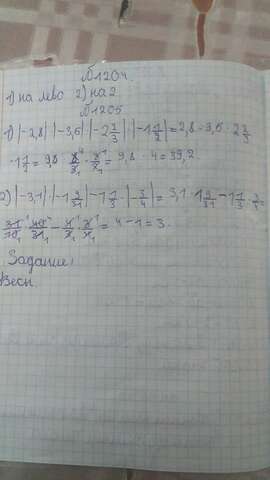 №1204
1) на лево 2) на 2
№1205
1) |-2,8| · |-3,5| · |-2 2/3| · |-1 1/2| = 2,8 · 3,5 · 2 2/3
· 1 1/2 = 9,8 · 8/3 · 3/2 = 9,8 · 4 = 39,2.
2) |-3,1| · |-1 9/31| - 1 1/3 · |-3/4| = 3,1 · 1 9/31 - 1 1/3 · 3/4 =
31/10 · 40/31 - 4/3 · 3/4 = 4 - 1 = 3.
Задание:
Весн